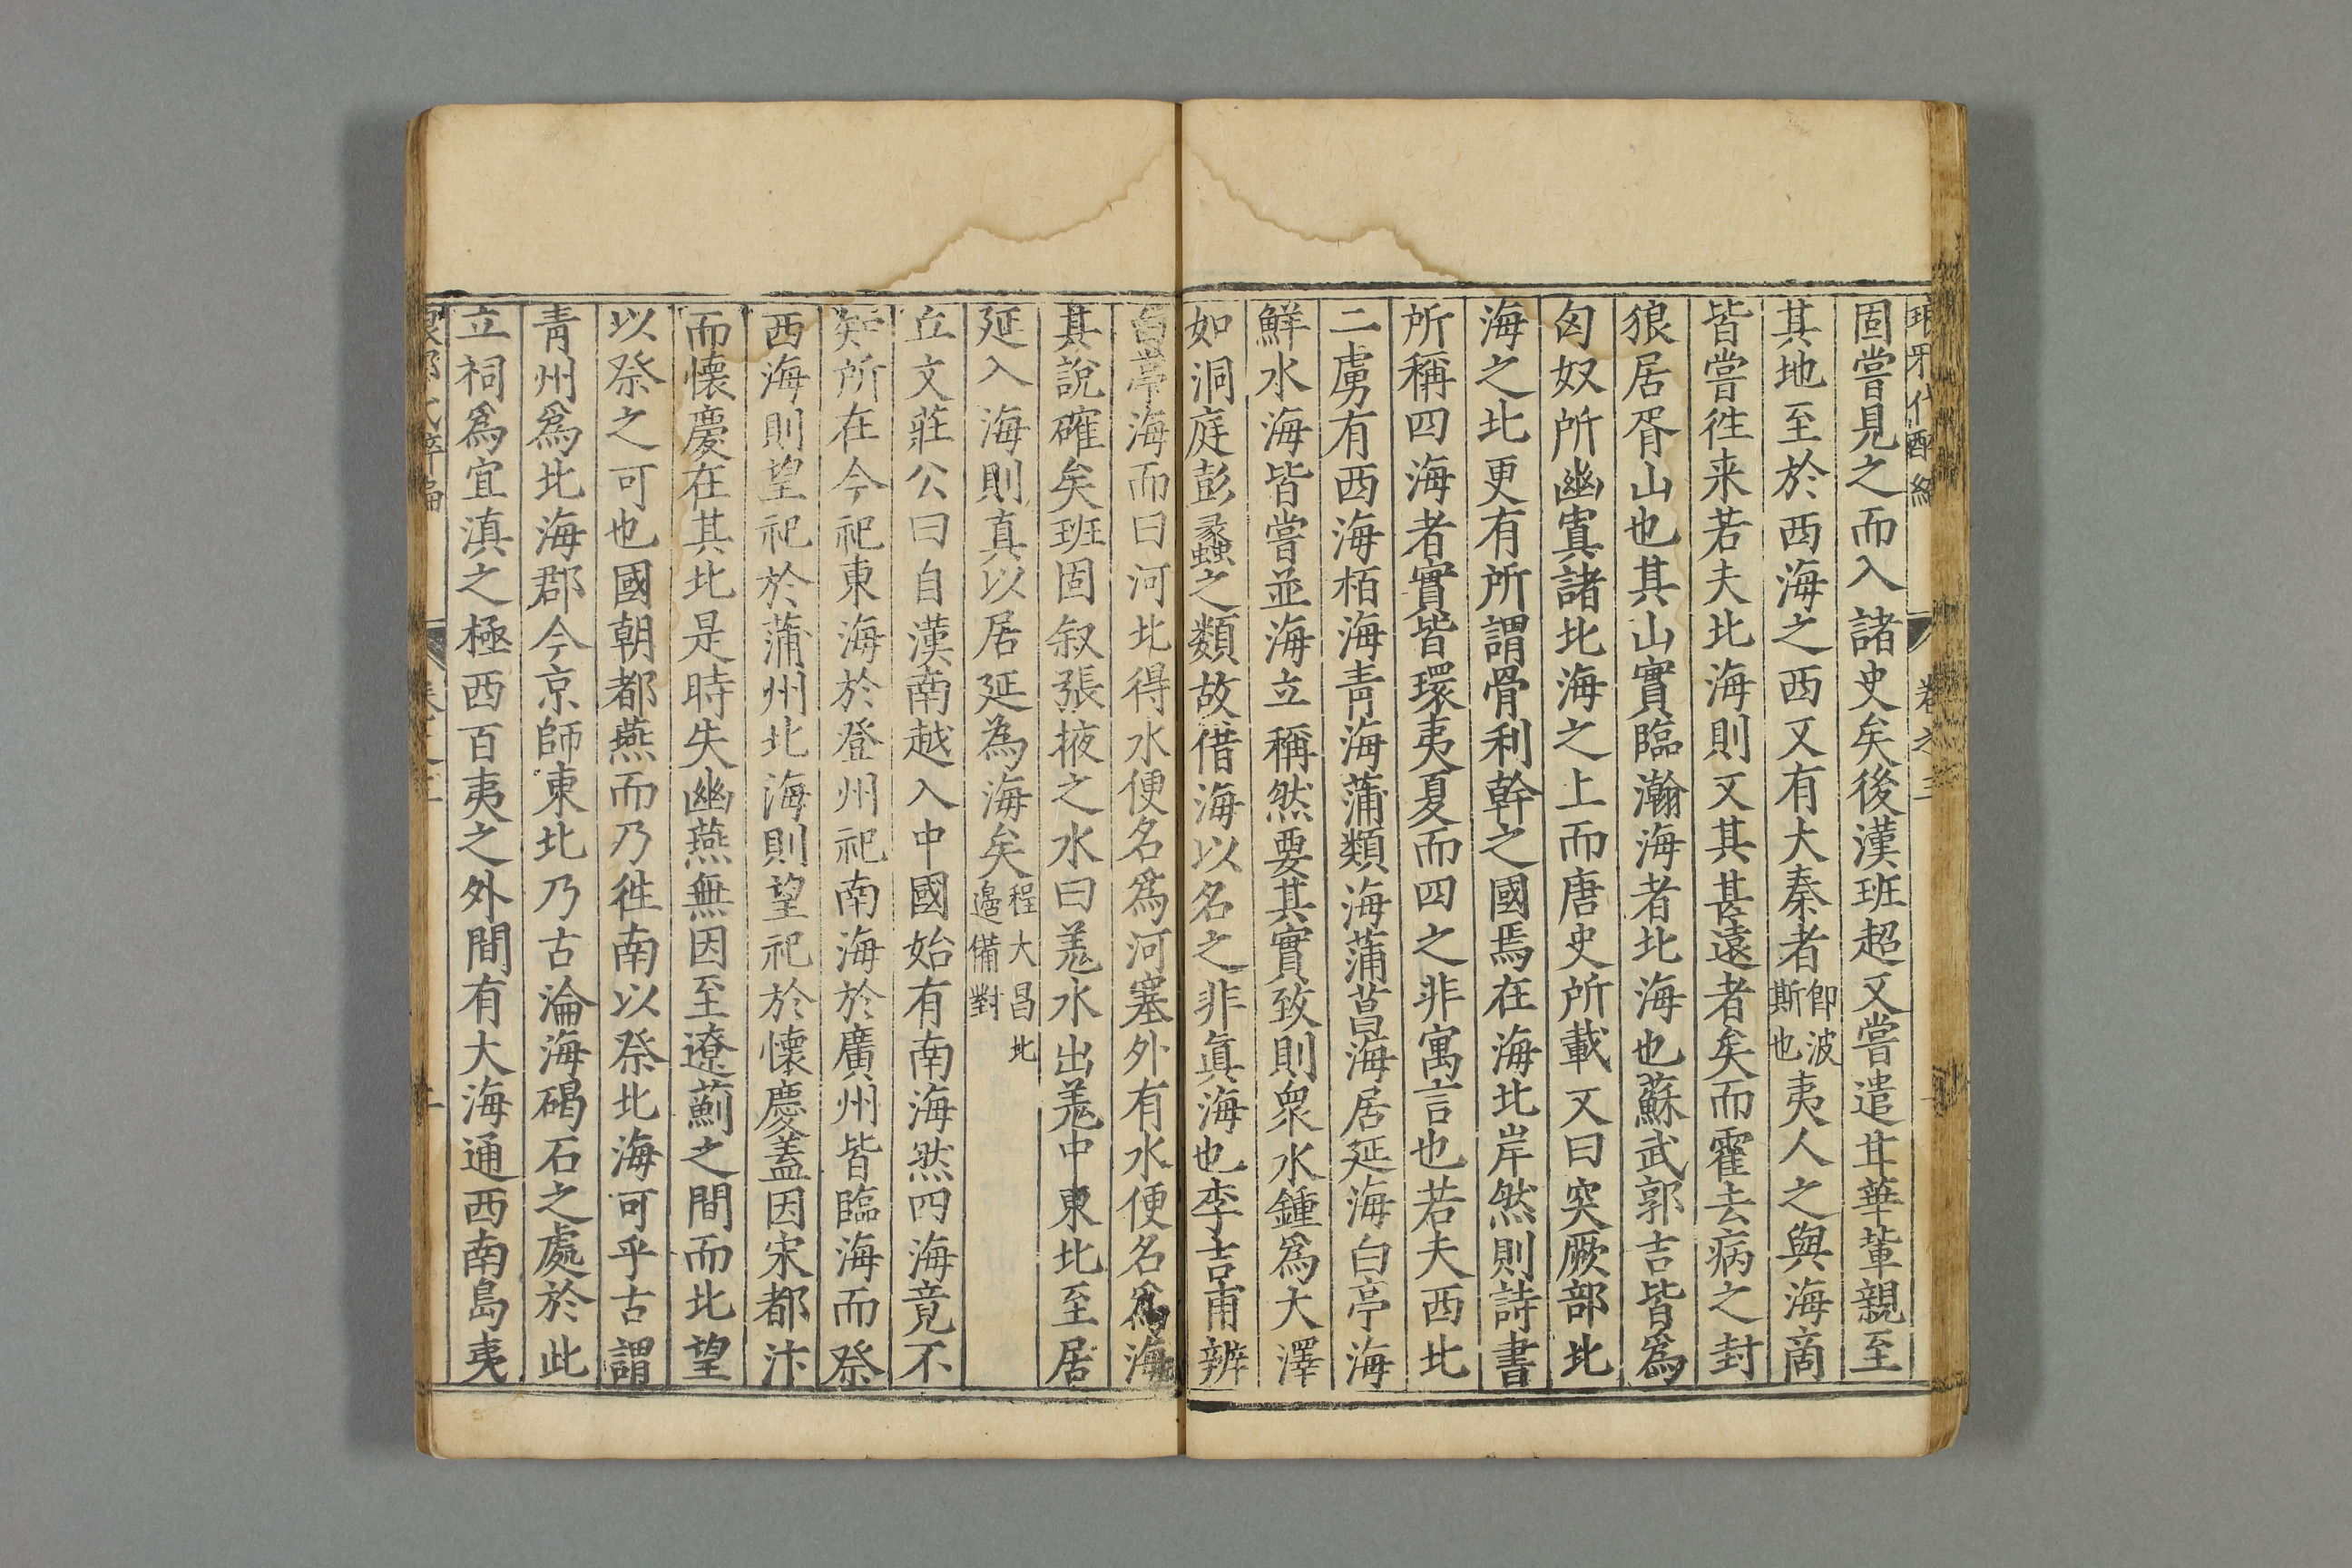 固嘗見之而入諸史矣後漢班超又嘗遣甘華輩親至
其地至於西海之西又有大秦者即波斯也夷人之與海商
皆嘗徃来若夫北海則又其甚遠者矣而霍去病之封
狼居胥山也其山實臨瀚海者北海也蘇武郭吉皆爲
匈奴所幽寘諸北海之上而唐史所載又曰突厥部北
海之北更有所謂骨利幹之國焉在海北岸然則詩書
所稱四海者實皆環夷夏而四之非寓言也若夫西北
二虜有西海栢海青海蒲類海蒲菖海居延海白亭海
鮮水海皆嘗並海立稱然要其實致則衆水鍾爲大澤
如洞庭彭蠡之類故借海以名之非眞海也李吉甫辨
白亭海而曰河北得水便名爲河塞外有水便名爲海
其說確矣班固叙張掖之水曰羗水出羗中東北至居
延入海則真以居延為海矣程大昌北邉備對
丘文莊公曰自漢南越入中國始有南海然四海竟不
知所在今祀東海於登州祀南海於廣州皆臨海而祭
西海則望祀於蒲州北海則望祀於懷慶蓋因宋都汴
而懷慶在其北是時失幽燕無因至遼薊之間而北望
以祭之可也國朝都燕而乃徃南以祭北海可乎古謂
青州爲北海郡今京師東北乃古淪海碣石之處於此
立祠爲宜滇之極西百夷之外間有大海通西南島夷